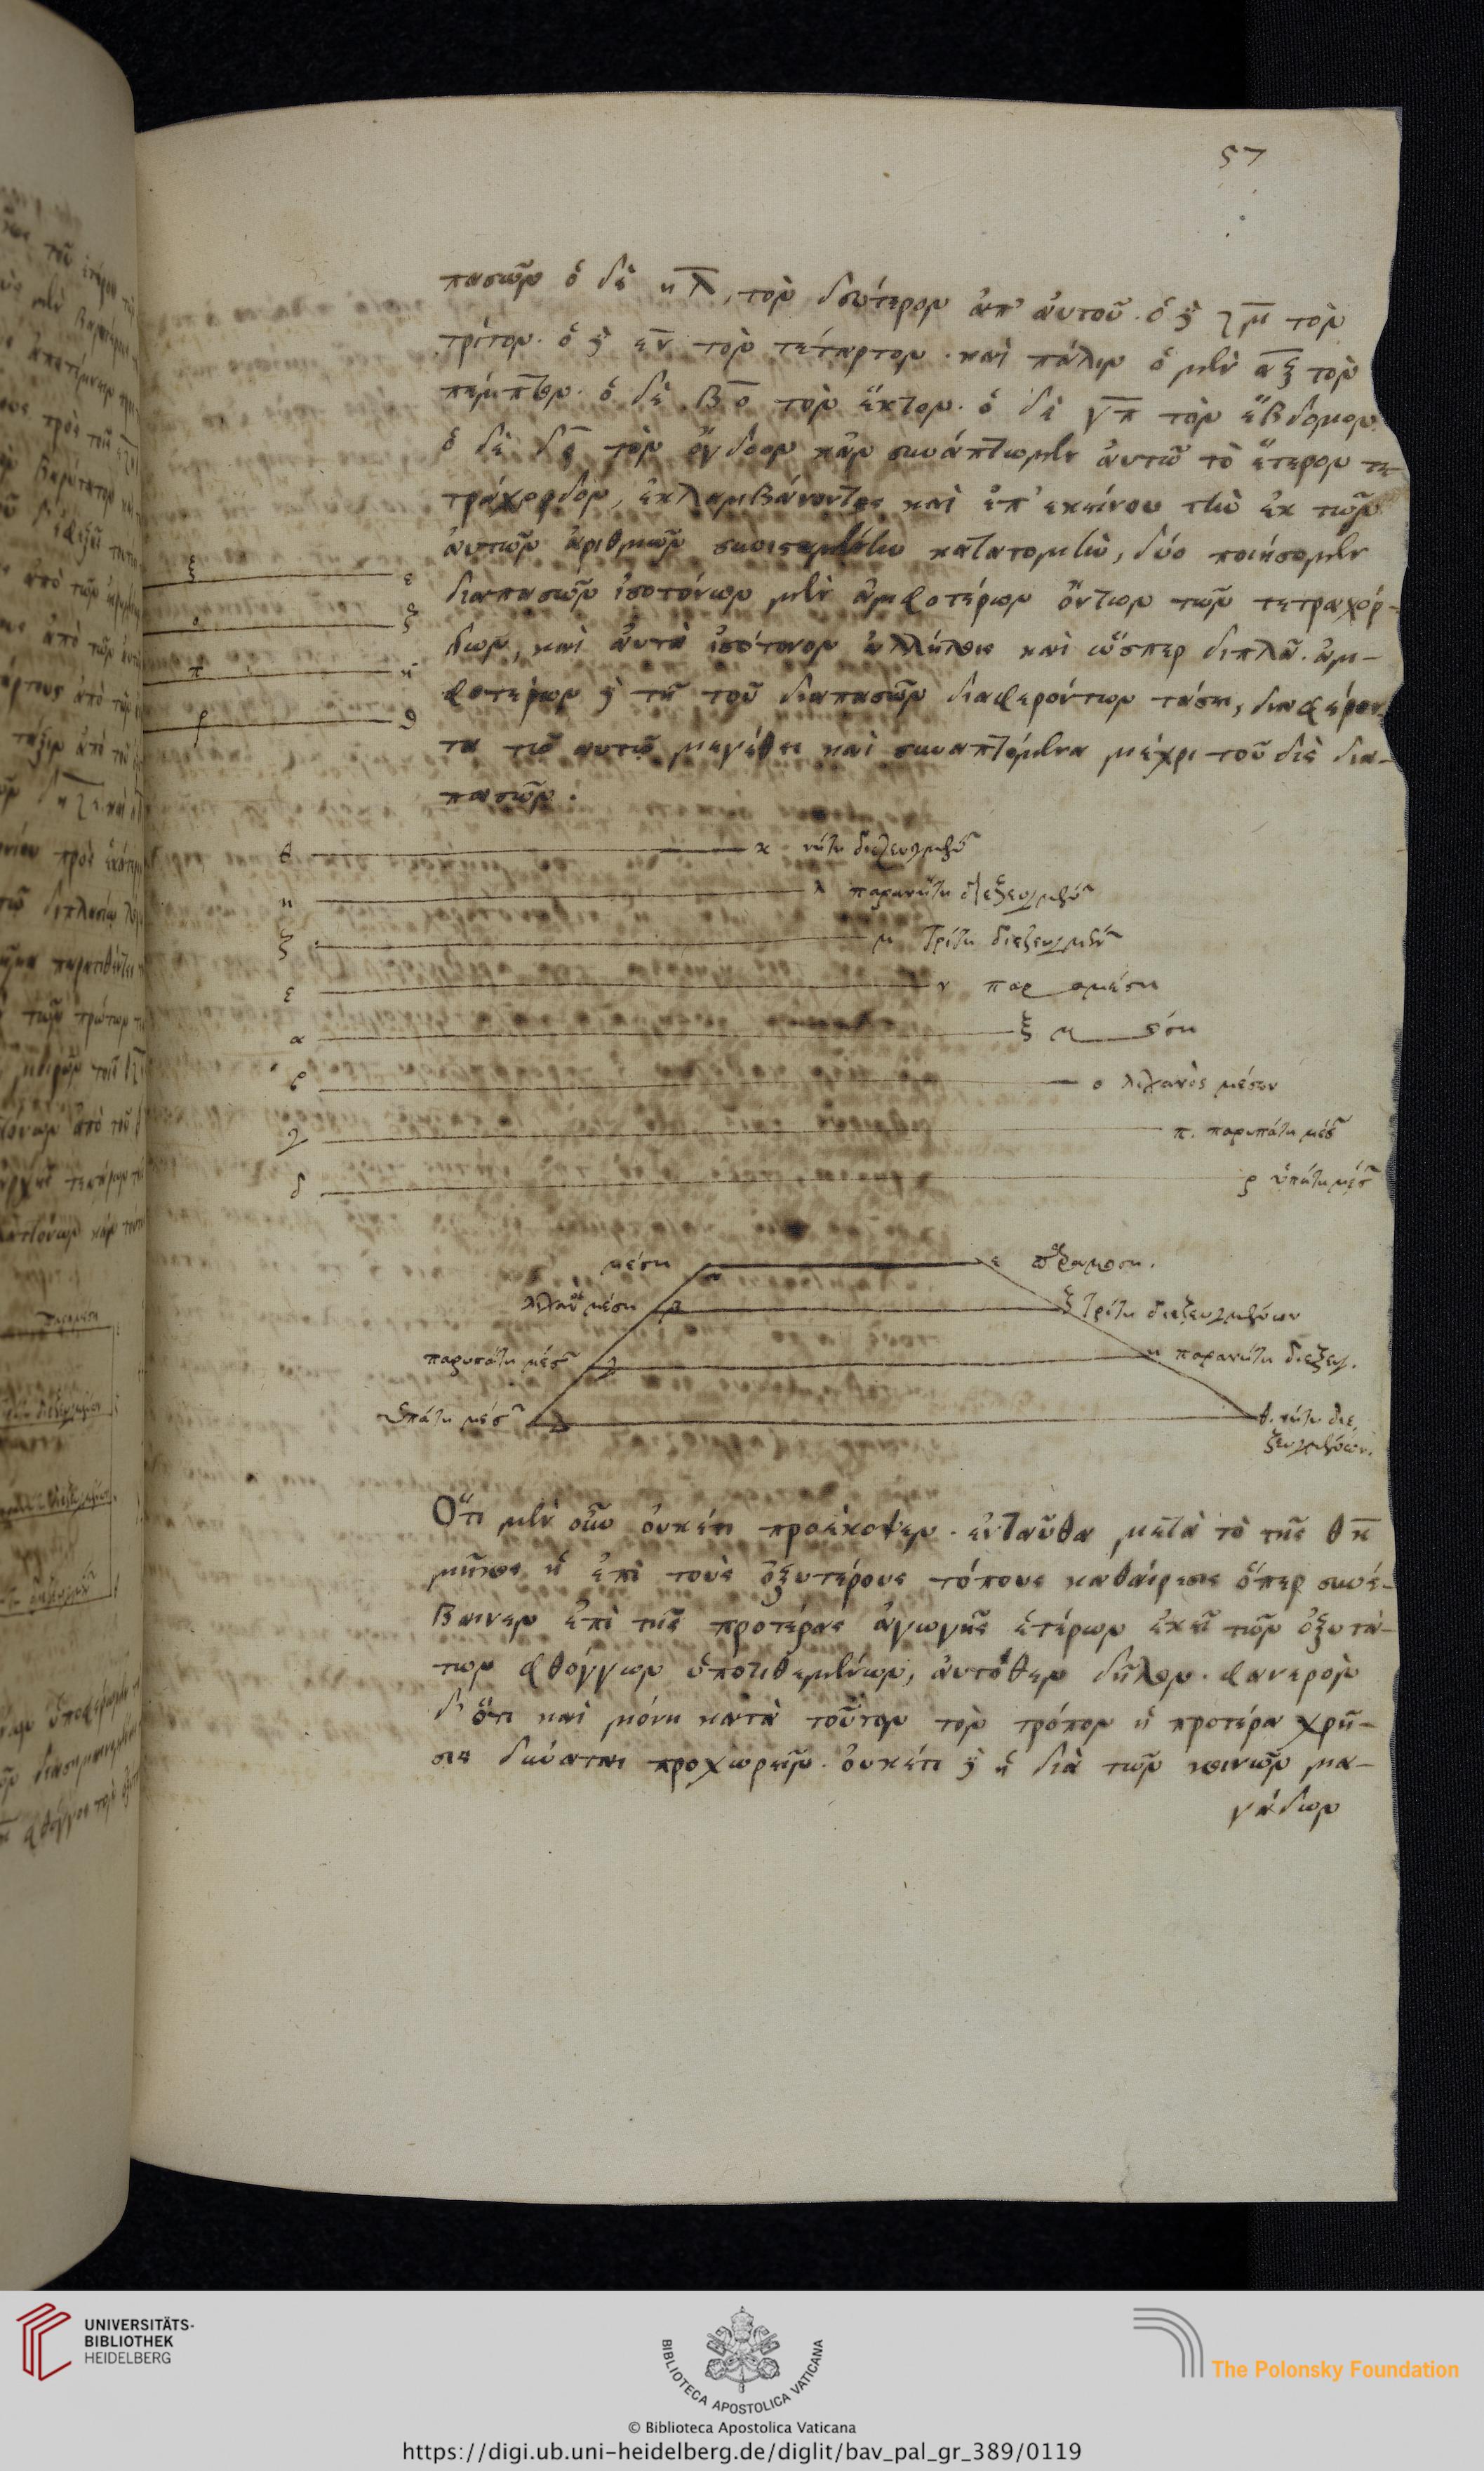 57
πασῶν ὁ δὲ η λ, τὸν δεύτερον ἀπ' αὐτοῦ. ὁ δὲ ζ μ τὸν
τρίτον. ὁ δὲ ε ν τὸν τέταρτον. καὶ πάλιν ὁ μὲν α ξ τὸν
πέμπτον. ὁ δὲ β ο τὸν ἕκτον. ὁ δὲ γ π τὸν ἕβδομον
ὁ δὲ δ ρ τὸν ὄγδοον κἂν συνάπτωμεν αὐτῷ τὸ ἕτερον τε-
τράχορδον, ἐκλαμβάνοντες καὶ ἐπ' ἐκείνου τὴν ἐκ τῶν
αὐτῶν ἀριθμῶν συνισταμένην κατατομὴν, δύο ποιήσομεν
διαπασῶν ἰσοτόνων μὲν ἀμφοτέρων ὄντων τῶν τετραχόρ-
δων, καὶ αὐτὰ ἰσότονον ἀλλήλοις καὶ ὥσπερ διπλᾶ. ἀμ-
φοτέρων δὲ τῇ τοῦ διαπασῶν διαφερόντων τάσει, διαφέρον-
τα τῷ αὐτῷ μεγέθει καὶ συναπτόμενα μέχρι τοῦ δὶς δια-
πασῶν.
ξ ε
ο ζ
π η
ρ θ
θ κ νήτη διεζευγμένων
η λ παρανήτη διεζευγμένων
ζ μ τρίτη διεζευγμένων
ε ν παραμέση
α ξ μέση
β ο λιχανὸς μέσων
γ π. παρυπάτη μέσων
δ ρ ὑπάτη μέσων
μέση α ε παραμέση.
λιχανὸς μέση β ζ τρίτη διεζευγμένων
παρυπάτη μέσων γ η παρανήτη διεζευγ.
ὑπάτη μέσων δ θ. νήτη διε
ζευγμένων.
Ὅτι μὲν οὖν οὐκέτι προέκοψεν. ἐνταῦθα μετὰ τὸ τῆς θ κ
μῆκος ἡ ἐπὶ τοὺς ὀξυτέρους τόπους καθαίρεσις ὅπερ συνέ-
βαινεν ἐπὶ τῆς προτέρας ἀγωγῆς ἑτέρων ἐκεῖ τῶν ὀξυτά-
των φθόγγων ὑποτιθεμένων, αὐτόθεν δῆλον. φανερὸν
δ' ὅτι καὶ μόνη κατὰ τοῦτον τὸν τρόπον ἡ προτέρα χρῆ-
σις δύναται προχωρεῖν. οὐκέτι δὲ ἡ διὰ τῶν κοινῶν μα-
γάδων
UNIVERSITÄTS-
BIBLIOTHEK
HEIDELBERG
BIBLIOTECA APOSTOLICA VATICANA
© Biblioteca Apostolica Vaticana
The Polonsky Foundation
https://digi.ub.uni-heidelberg.de/diglit/bav_pal_gr_389/0119